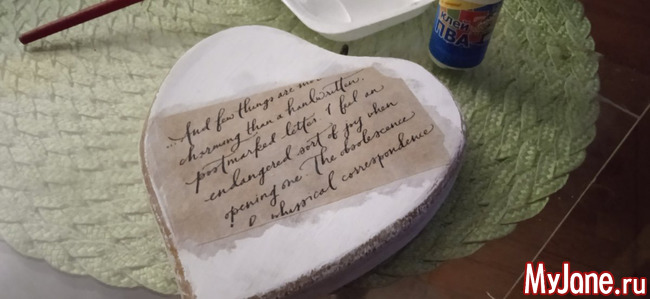 ...And few things are more
charming than a handwritten,
postmarked letter. I feel an
endangered sort of joy when
opening one. The obsolescence
whimsical correspondence
КЛЕЙ
ПВА
MyJane.ru